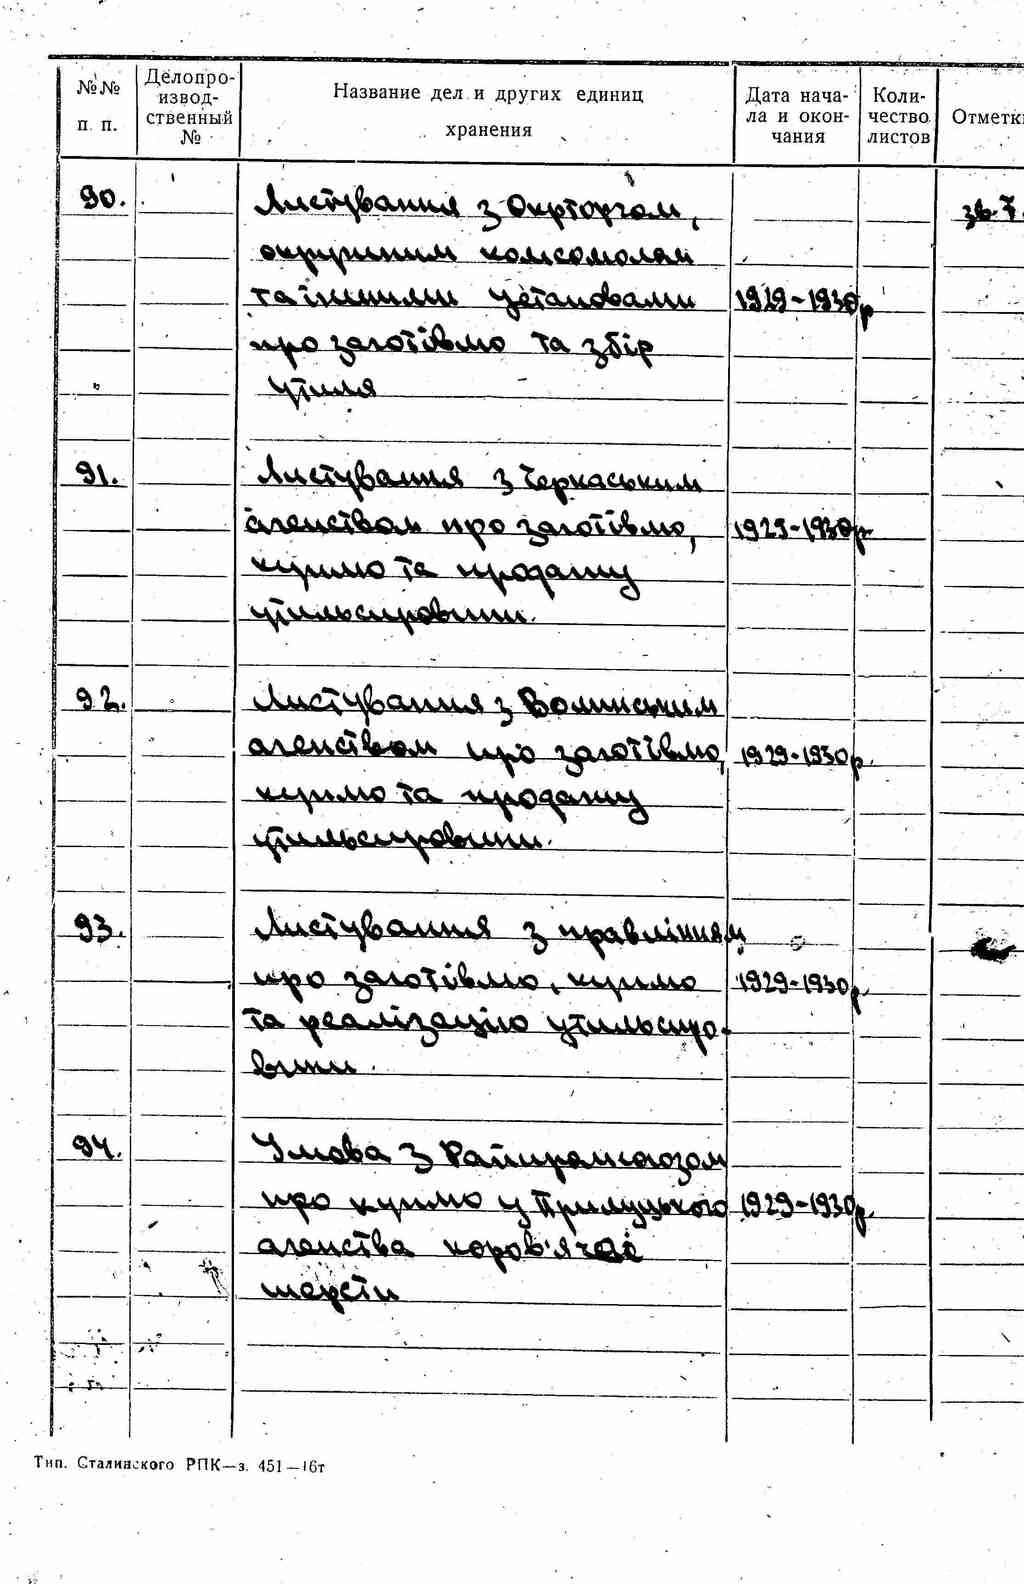 №№ п. п.
Делопроизводственный №
Название дел и других единиц хранения
Дата начала и окончания
Количество листов
Отметки
90. Листування з Окрторгом, зв. 7.
окружним комсомолом
та іншими установами 1929-1930р
про заготівлю та збір
утиля
91. Листування з Черкаським
агенством про заготівлю, 1929-1930р.
куплю та продажу
утильсировини.
92. Листування з Волинським
агенством про заготівлю, 1929-1930р.
куплю та продажу
утильсировини.
93. Листування з правлінням
про заготівлю, куплю 1929-1930р.
та реалізацію утильсиро-
вини.
94. Умова з Райпромсоюзом
про куплю у Прилуцького 1929-1930р.
агенства коров'ячої
шерсти
Тип. Сталинского РПК—з. 451—16т